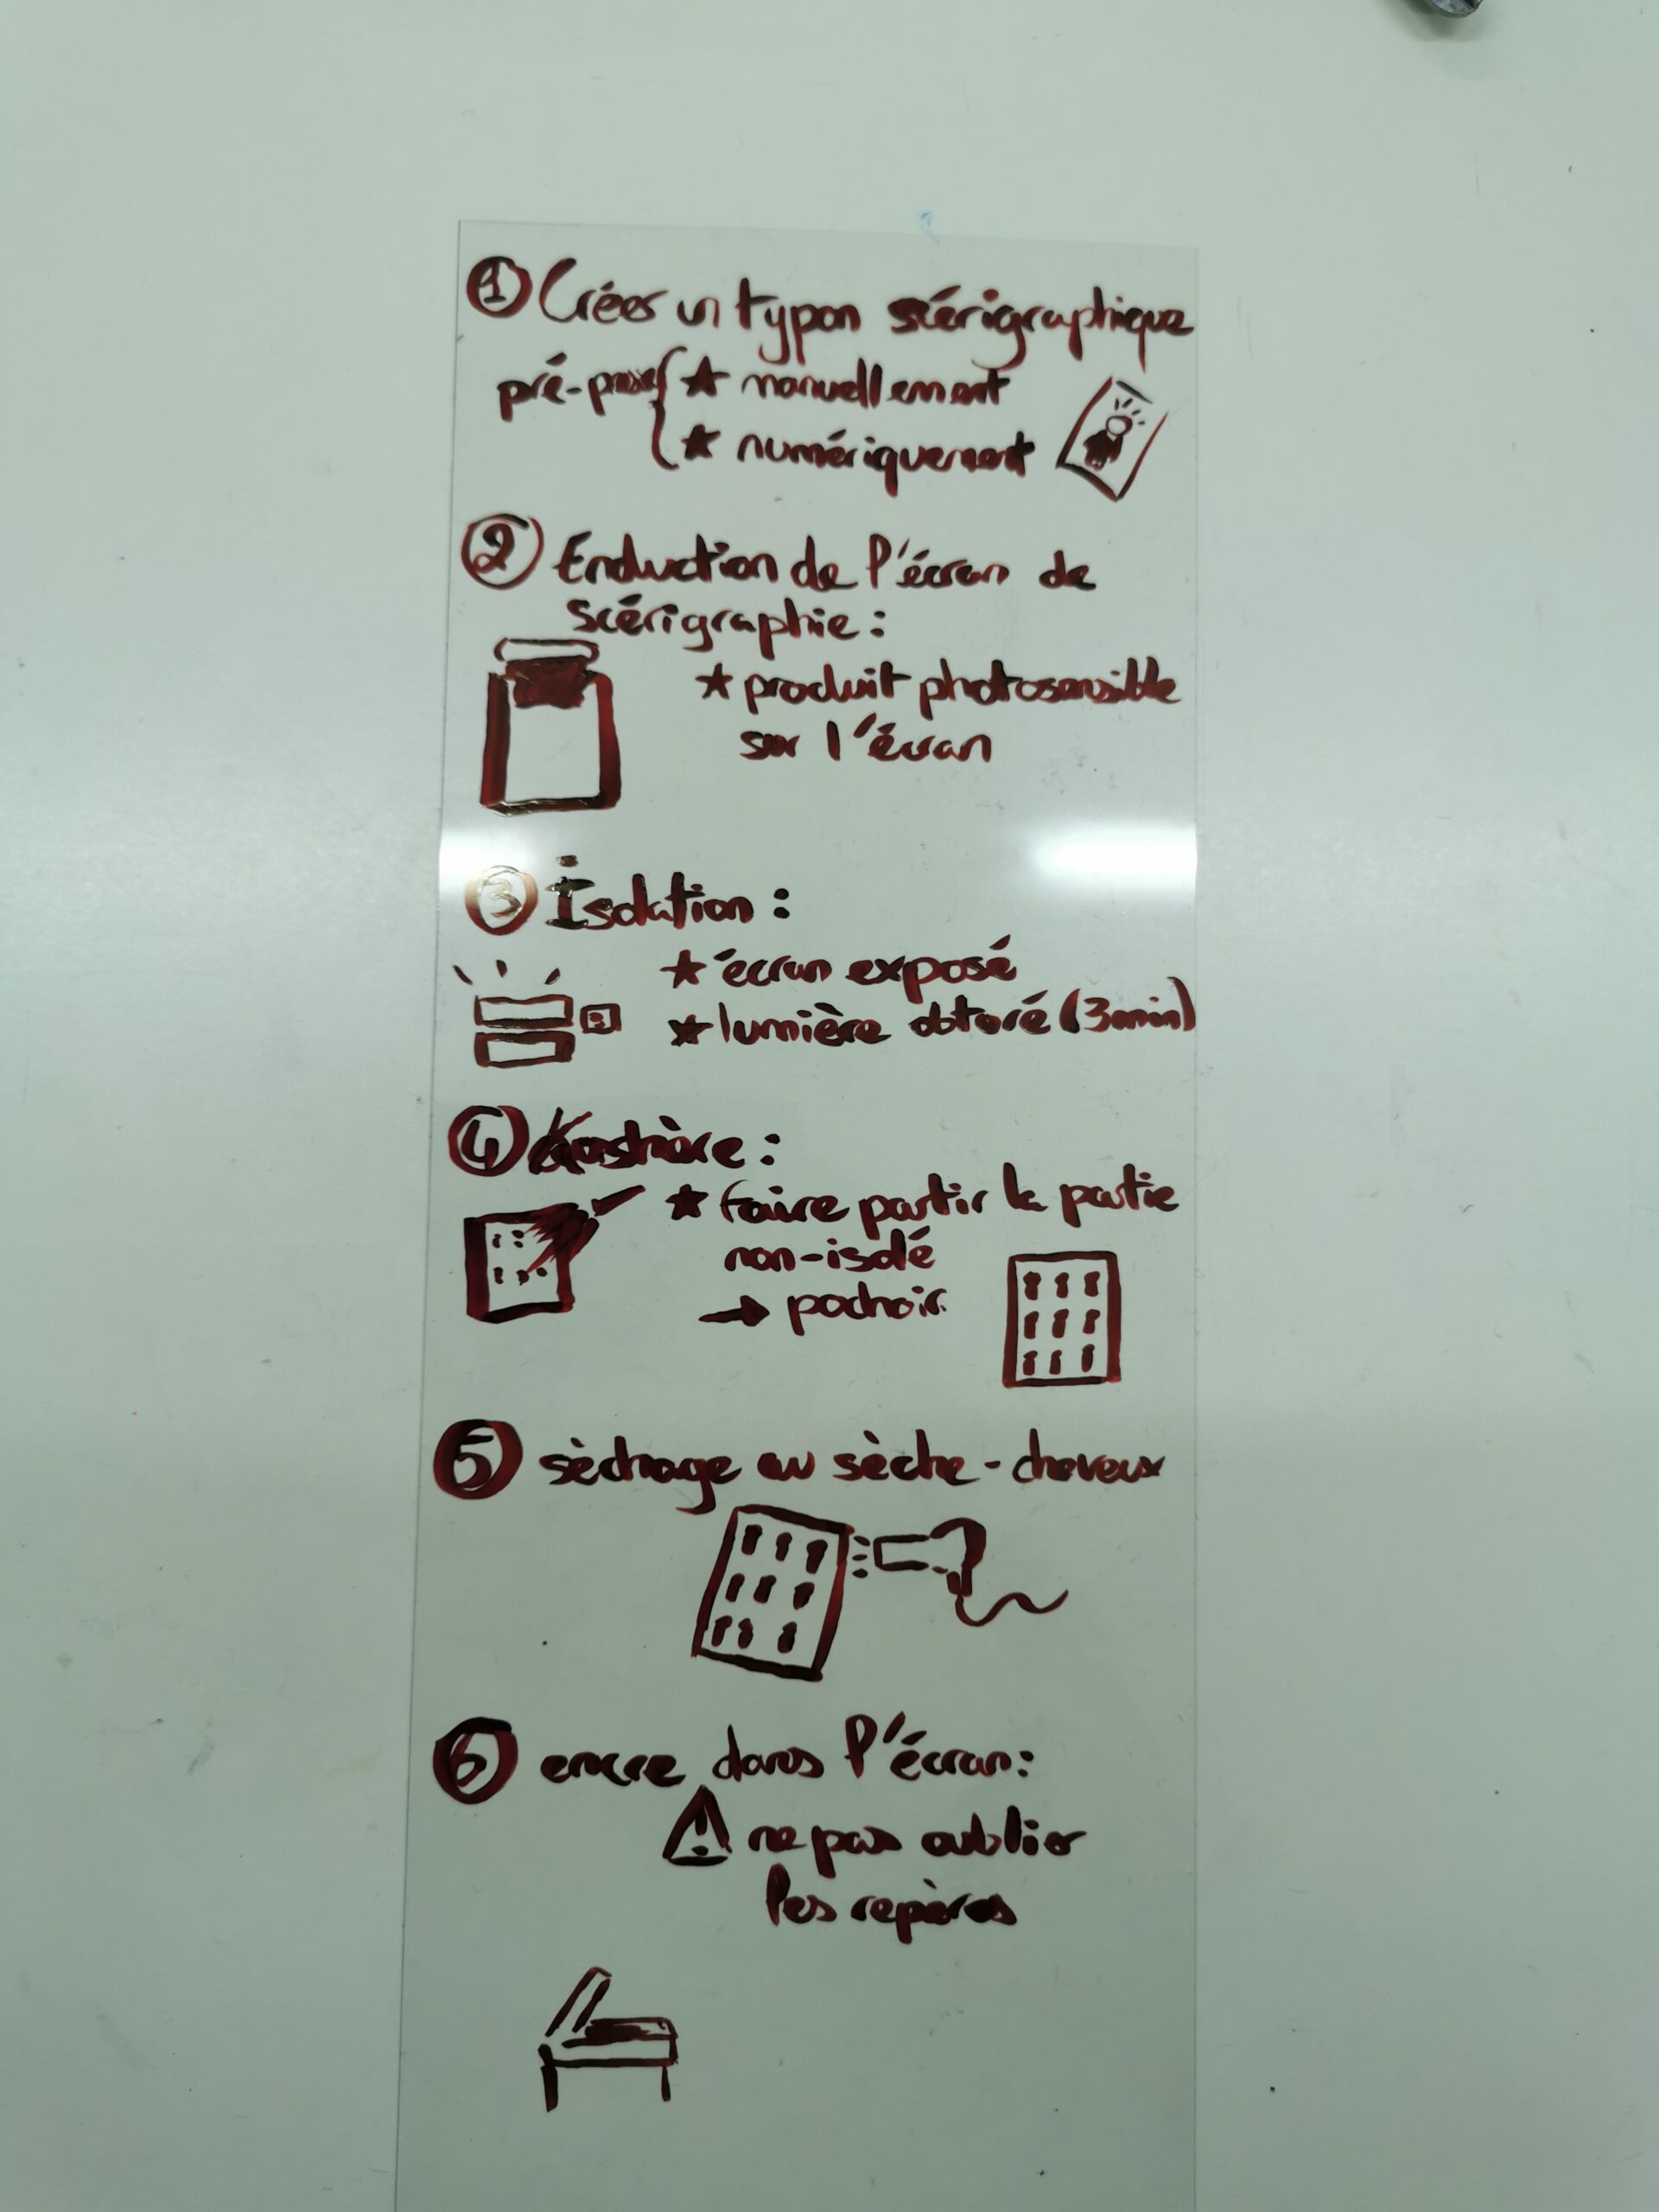 ① Créer un typon scérigraphique
pré-presse { ★ manuellement
★ numériquement
② Enduction de l'écran de
scérigraphie :
★ produit photosensible
sur l'écran
③ Isolation :
★ écran exposé
★ lumière obturé (3min)
④ Karshère :
★ faire partir la partie
non-isolé
→ pochoir
⑤ sèchage au sèche-cheveux
⑥ encre dans l'écran :
⚠ ne pas oublier
les repères